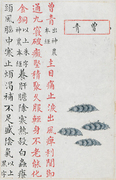 曾青
曾青出神農本經主目痛止淚出風痺利關節
通九竅破癥堅積聚久服輕身不老能化
金銅以上朱字神農本經養肝膽除寒熱殺白蟲療
頭風腦中寒止煩渴補不足盛陰氣以上黑字